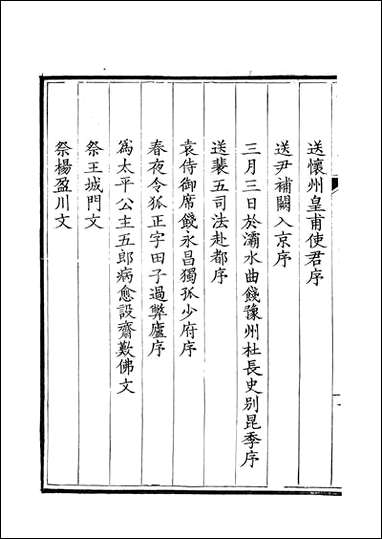 送懷州皇甫使君序
送尹補闕入京序
三月三日於灞水曲餞豫州杜長史別昆季序
送裴五司法赴都序
袁侍御席餞永昌獨孤少府序
春夜令狐正字田子過弊廬序
為太平公主五郎病愈設齋歎佛文
祭王城門文
祭楊盈川文